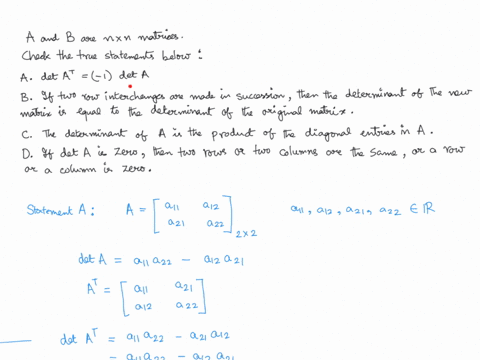 A and B are n×n matrices.
Check the true statements below:
A. det Aᵀ = (-1) det A
B. If two row interchanges are made in succession, then the determinant of the new
matrix is equal to the determinant of the original matrix.
C. The determinant of A is the product of the diagonal entries in A.
D. If det A is zero, then two rows or two columns are the same, or a row
or a column is zero.
Statement A: A = [ a₁₁ a₁₂ a₁₁, a₁₂, a₂₁, a₂₂ ∈ ℝ
a₂₁ a₂₂ ] 2×2
det A = a₁₁a₂₂ - a₁₂a₂₁
Aᵀ = [ a₁₁ a₂₁
a₁₂ a₂₂ ]
det Aᵀ = a₁₁a₂₂ - a₂₁a₁₂
= a₁₁a₂₂ - a₁₂a₂₁